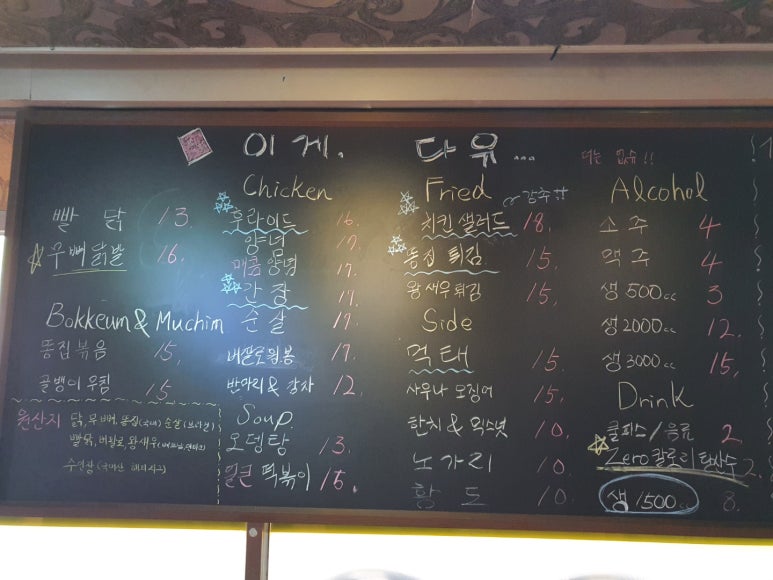 이게. 다유...
더는 없슈!!
빨 닭 13.
무뼈닭발 16.
Bokkeum & Muchim
똥집볶음 15.
골뱅이무침 15
원산지 닭, 무뼈, 똥집(국내) 순살(브라질)
빨닭, 버팔로, 왕새우
Chicken
후라이드 16.
양념 17.
매콤양념 17.
간장 17.
순살 19.
버팔로윙봉 19.
반마리 & 감자 12.
Soup
오뎅탕 13.
얼큰 떡볶이 15.
Fried 강추!!
치킨샐러드 18.
똥집 튀김 15.
왕새우튀김 15.
Side
먹태 15.
사우나 오징어 15.
한치 & 믹스넛 10.
노가리 10.
황 도 10.
Alcohol
소주 4
맥주 4
생 500cc 3
생 2000cc 12.
생 3000cc 15.
Drink
쿨피스/음료 2
Zero칼로리 탄산수 2.
생 1500cc 8.